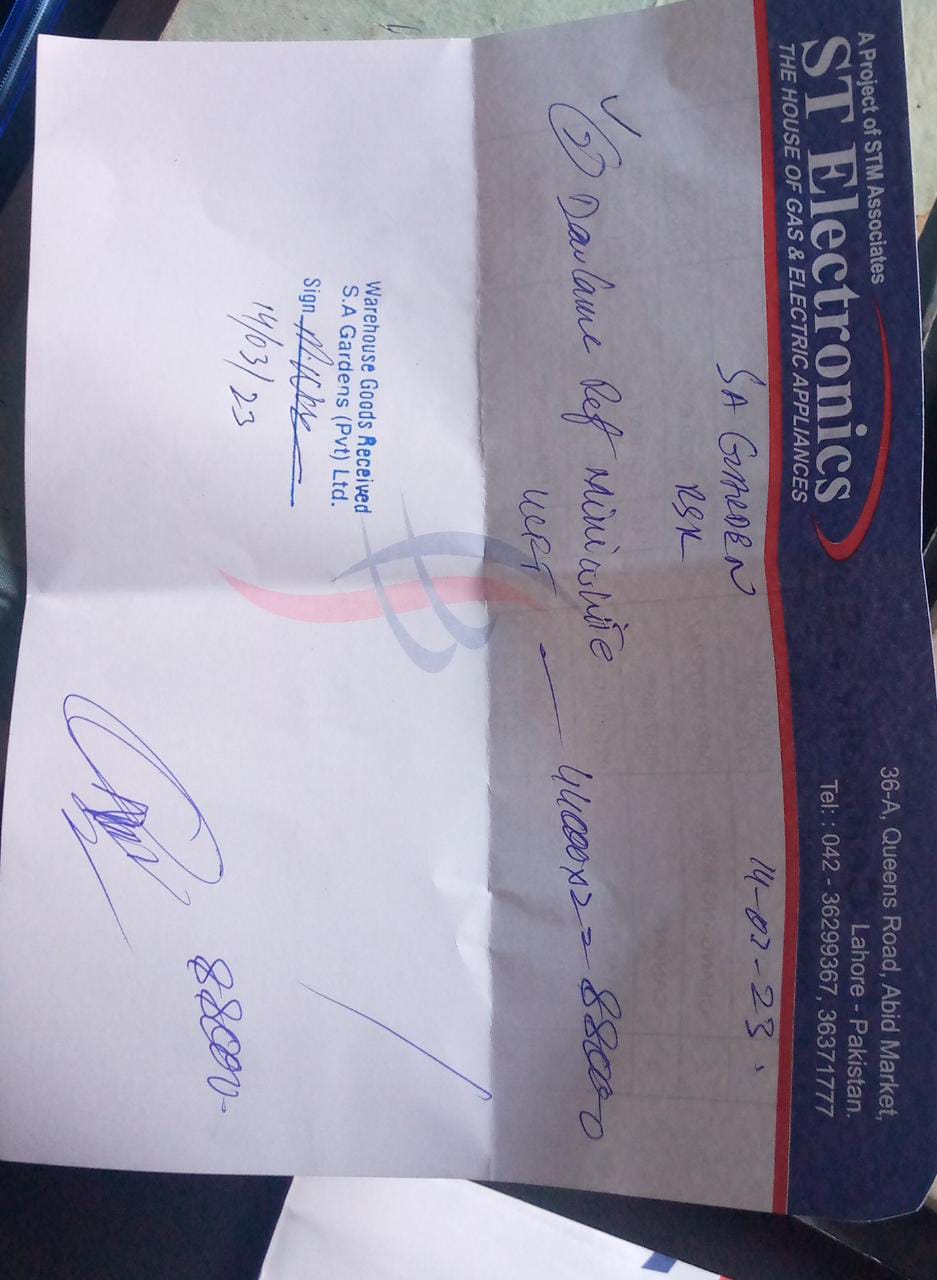 A Project of STM Associates
ST Electronics
THE HOUSE OF GAS & ELECTRIC APPLIANCES
36-A, Queens Road, Abid Market,
Lahore - Pakistan.
Tel: : 042 - 36299367, 36371777
SA GARDEN
RSK
14-03-23.
Dawlance Ref Mini white
44000x2=88000
Warehouse Goods Received
S.A Gardens (Pvt) Ltd.
Sign
14/03/23
88000-